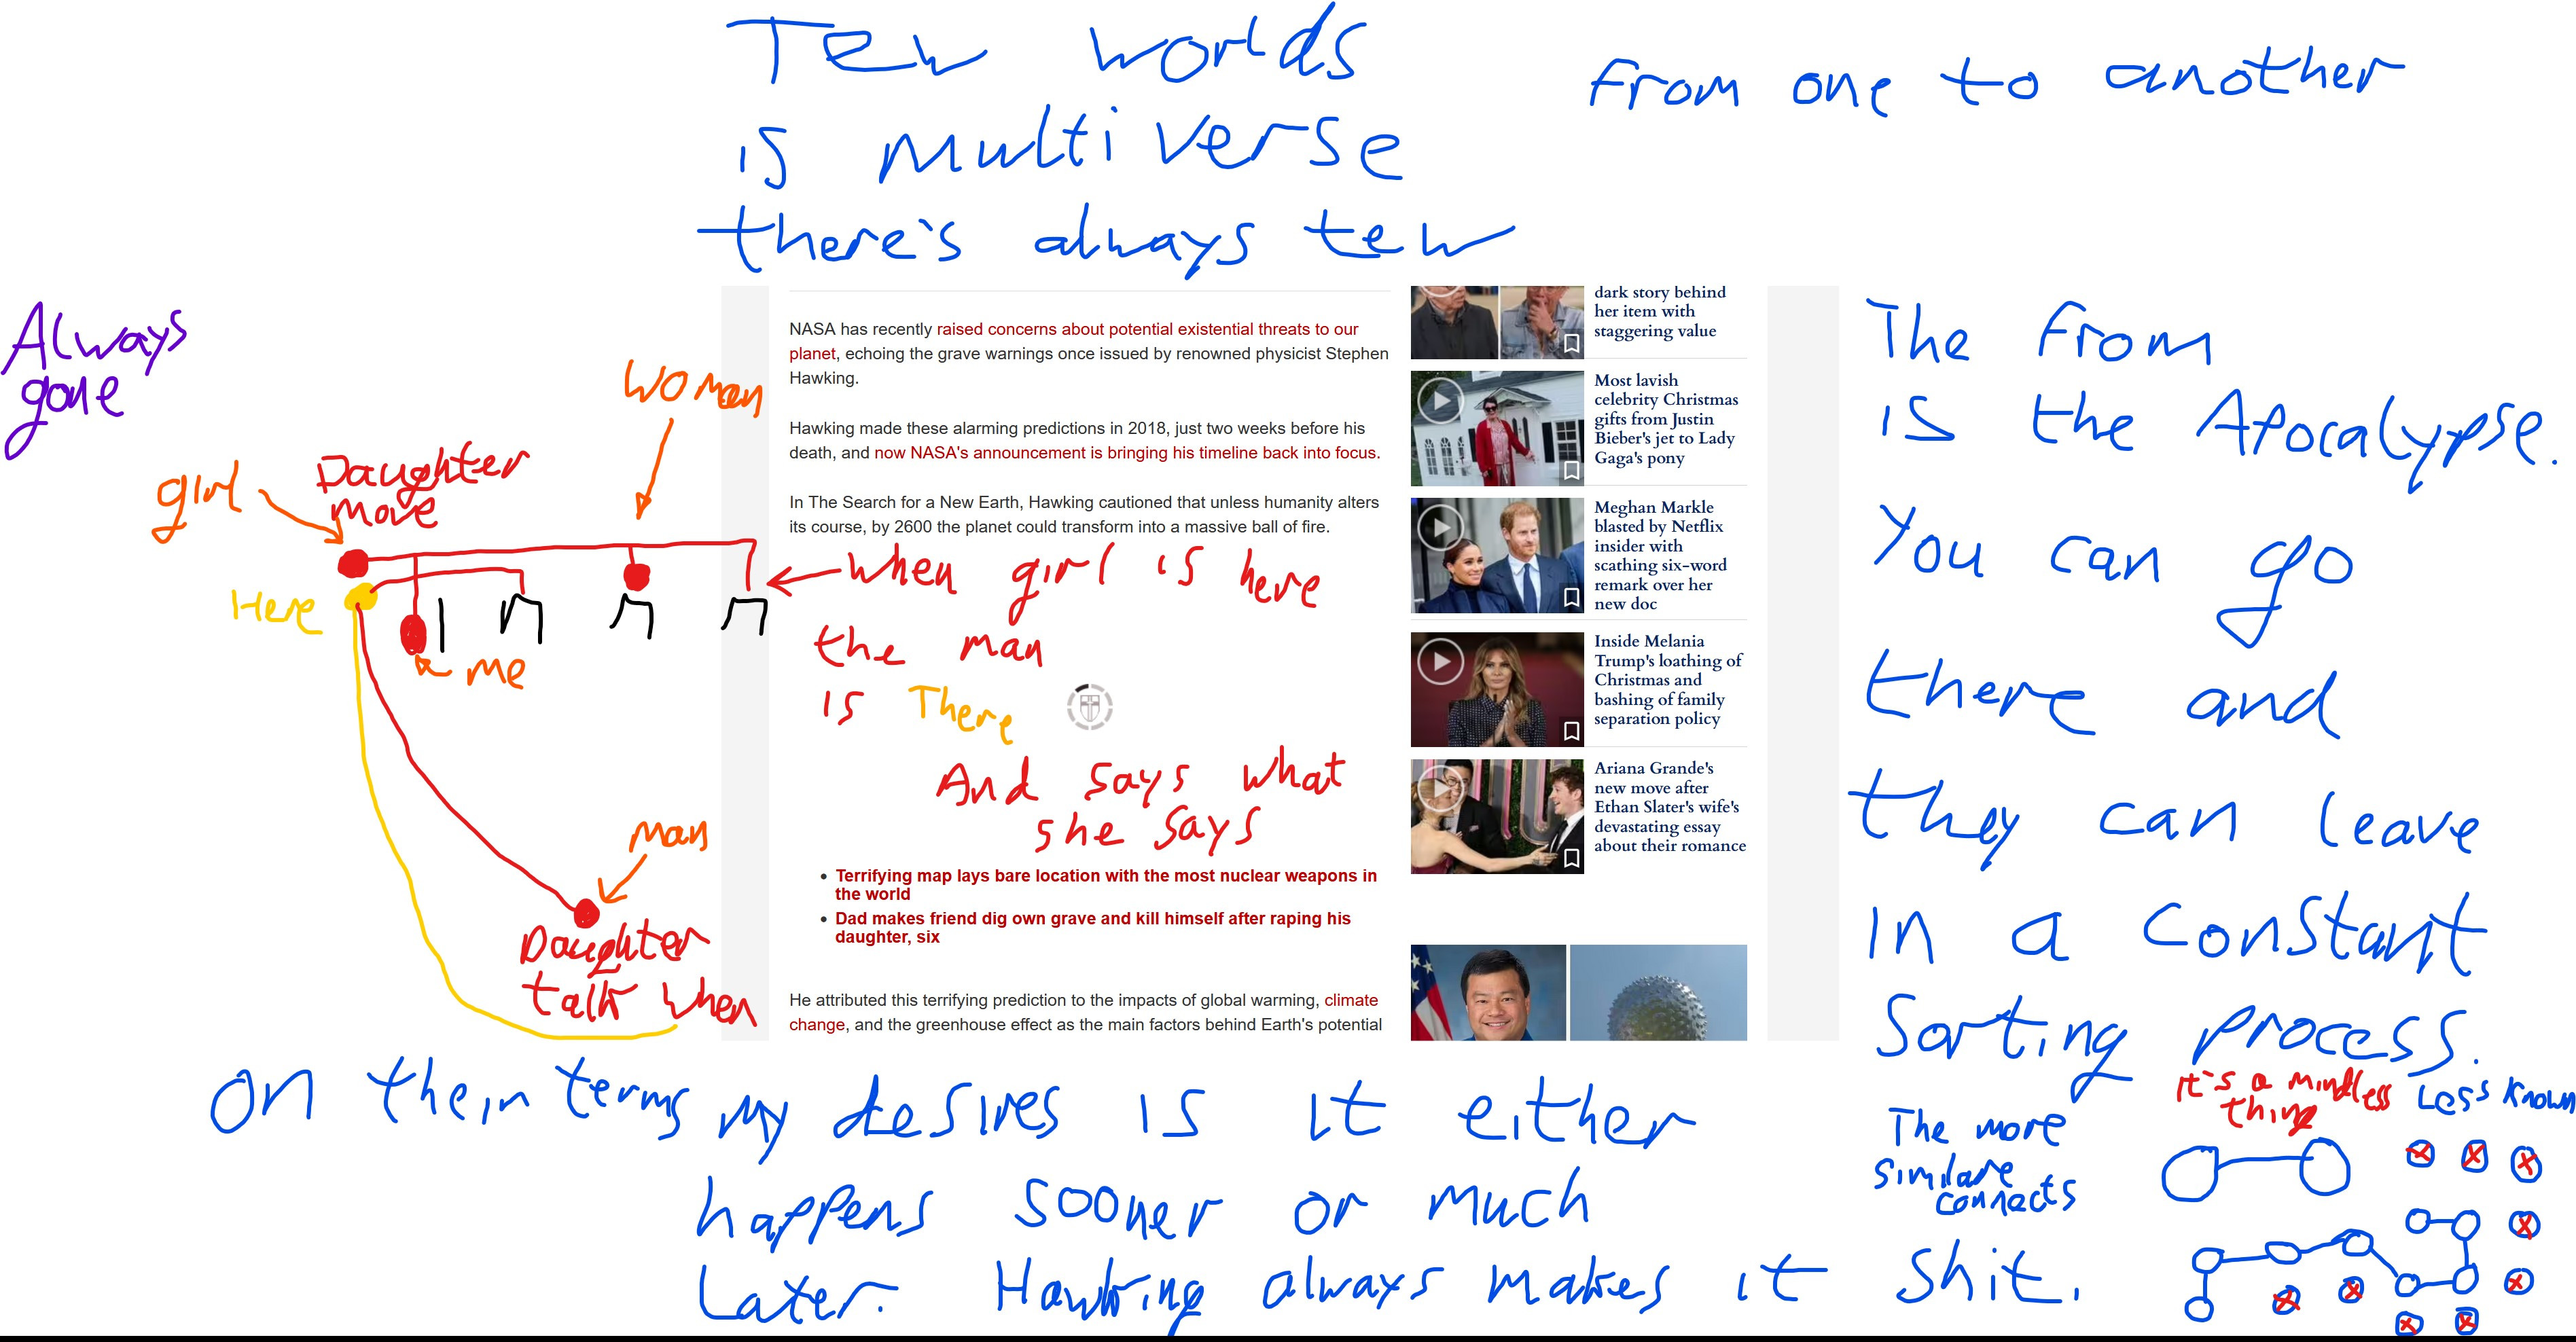 Tew worlds
is multiverse
there's always tew
from one to another
Always
gone
girl
Daughter
move
women
Here
me
man
Daughter
talk when
NASA has recently raised concerns about potential existential threats to our
planet, echoing the grave warnings once issued by renowned physicist Stephen
Hawking.
Hawking made these alarming predictions in 2018, just two weeks before his
death, and now NASA's announcement is bringing his timeline back into focus.
In The Search for a New Earth, Hawking cautioned that unless humanity alters
its course, by 2600 the planet could transform into a massive ball of fire.
when girl is here
the man
is There
And says what
she says
Terrifying map lays bare location with the most nuclear weapons in
the world
Dad makes friend dig own grave and kill himself after raping his
daughter, six
He attributed this terrifying prediction to the impacts of global warming, climate
change, and the greenhouse effect as the main factors behind Earth's potential
dark story behind
her item with
staggering value
Most lavish
celebrity Christmas
gifts from Justin
Bieber's jet to Lady
Gaga's pony
Meghan Markle
blasted by Netflix
insider with
scathing six-word
remark over her
new doc
Inside Melania
Trump's loathing of
Christmas and
bashing of family
separation policy
Ariana Grande's
new move after
Ethan Slater's wife's
devastating essay
about their romance
The from
is the Apocalypse.
You can go
there and
they can leave
in a constant
Sorting process.
on their terms
my desires is it either
happens sooner or much
Later. Hawking always makes it shit.
It's a mindless
thing
Less known
The more
similare
connects